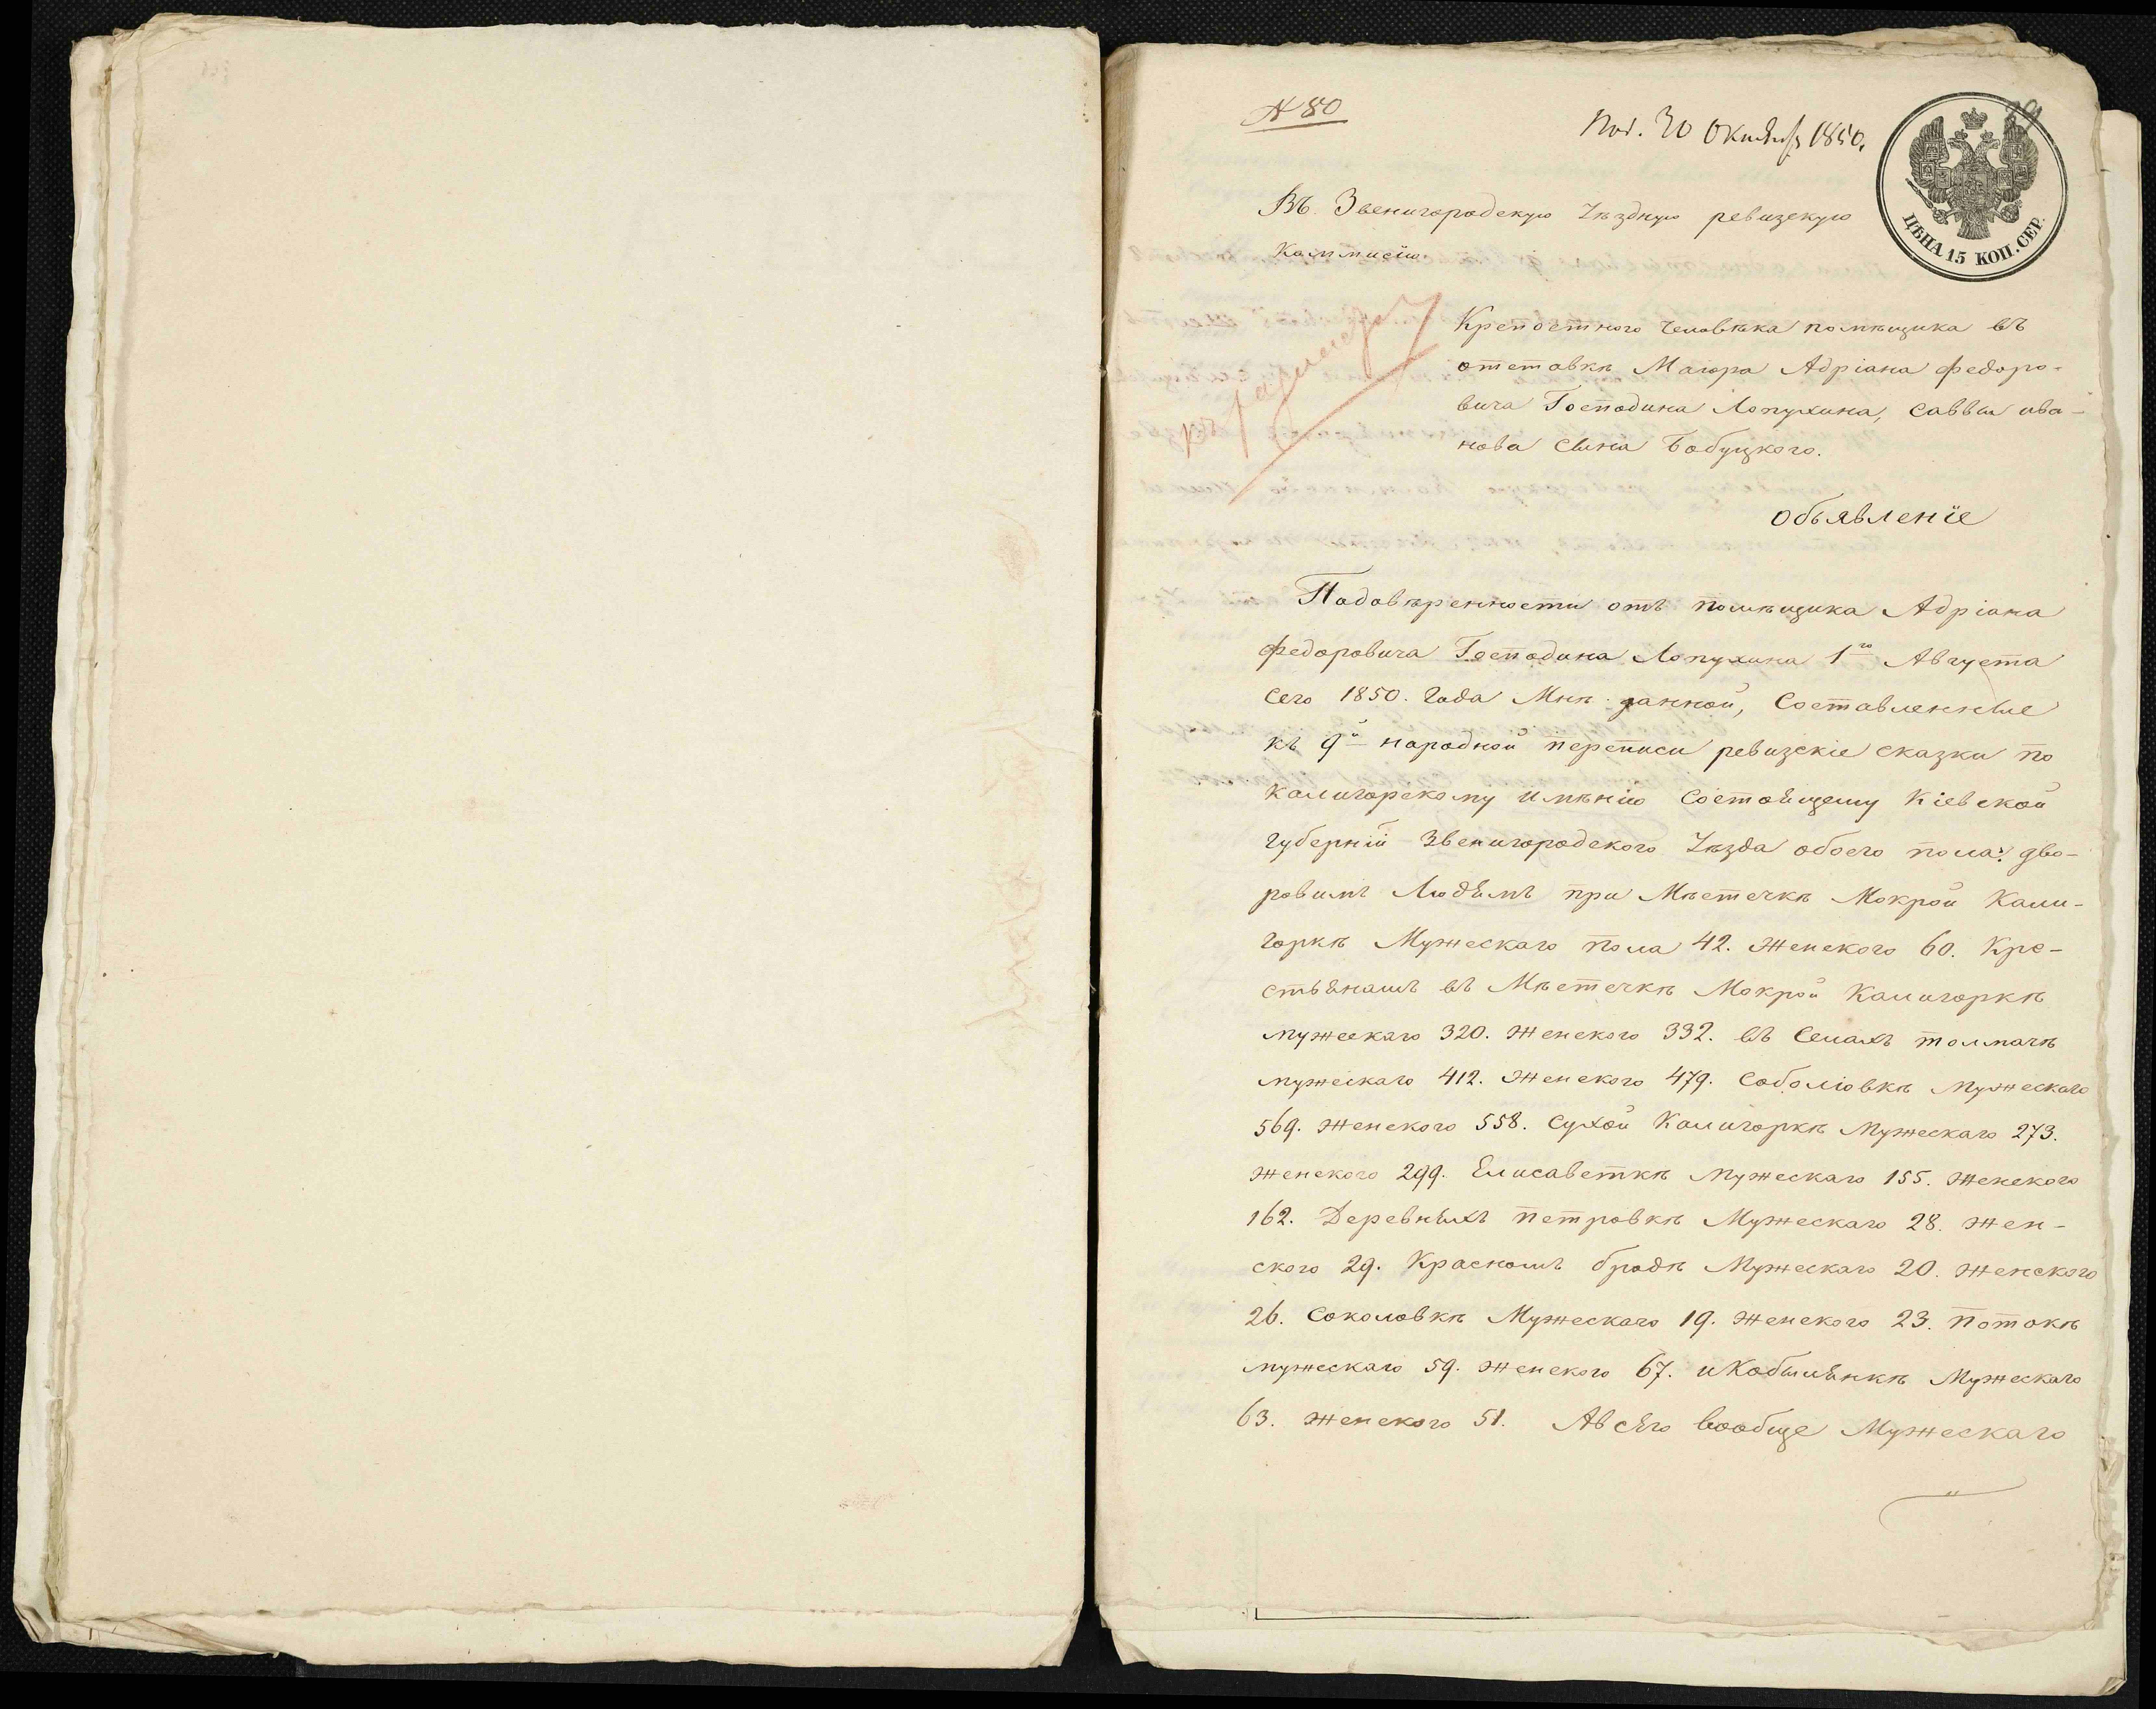 № 80
Пол. 30 Октября 1850.
ЦѢНА 15 КОП. СЕР.
Въ Звенигородскую Уѣздную ревизскую
Коммисію.
Крепостного Человѣка помѣщика въ
отставкѣ Маіора Адріана Федоро-
вича Господина Лопухина, Саввы ива-
нова Сына Бабуцкого.
Объявленіе
Подовѣренности отъ помѣщика Адріана
Федоровича Господина Лопухина 1го Августа
Сего 1850. Года Мнѣ данной, Составленные
къ 9й народной переписи ревизскіе сказки по
Калигорскому имѣнію Состоящему Кіевской
Губерніи Звенигородского Уѣзда обоего пола: дво-
ровымъ Людямъ при Мѣстечкѣ Мокрой Кали-
горкѣ Мужескаго пола 42. Женского 60. Кре-
стьянамъ въ Мѣстечкѣ Мокрой Калигоркѣ
мужескаго 320. Женского 332. въ Селахъ толмачѣ
мужескаго 412. Женского 479. Соболіовкѣ Мужескаго
569. Женского 558. Сухой Калигоркѣ Мужескаго 273.
Женского 299. Елисаветкѣ Мужескаго 155. Женского
162. Деревняхъ петровкѣ Мужескаго 28. Жен-
ского 29. Красномъ бродѣ Мужескаго 20. Женского
26. Соколовкѣ Мужескаго 19. Женского 23. Потокѣ
мужескаго 59. Женского 67. иКобылянкѣ Мужескаго
63. Женского 51. Авсѣго вообще Мужескаго